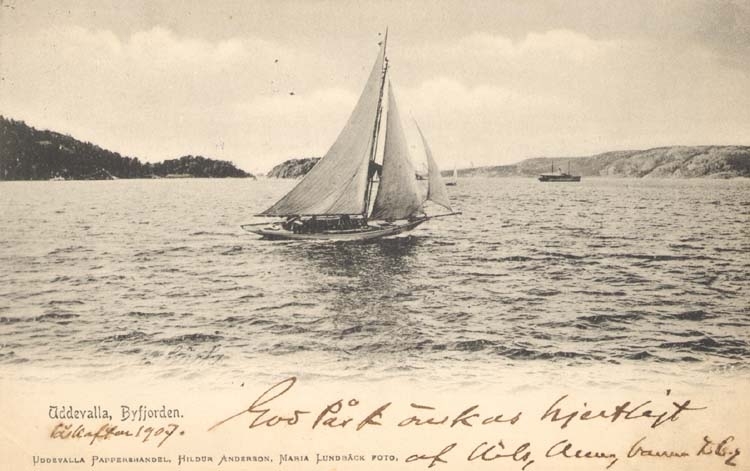 Uddevalla, Byfjorden.
Påskafton 1907.
God Påsk önskas hjertligt
af Nils, Anna, barnen
UDDEVALLA PAPPERSHANDEL, HILDUR ANDERSON, MARIA LUNDBÄCK FOTO.